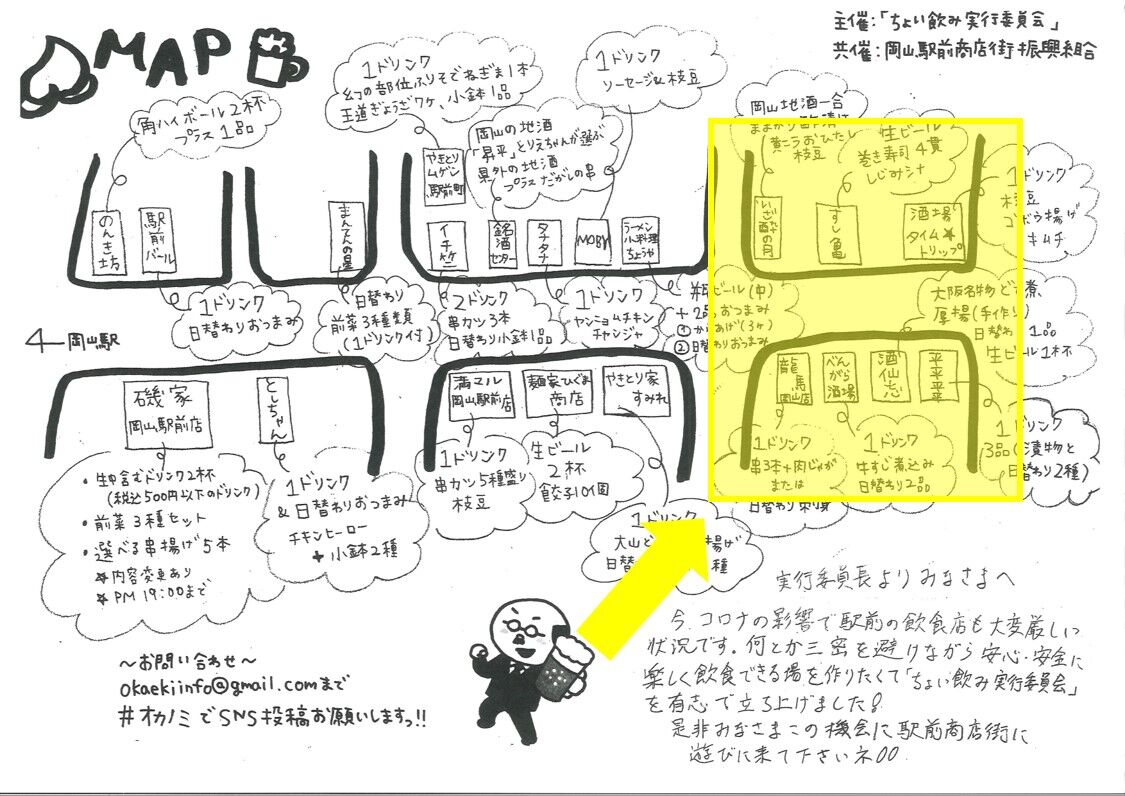 MAP
主催:「ちょい飲み実行委員会」
共催:岡山駅前商店街振興組合
角ハイボール2杯
プラス1品
1ドリンク
幻の部位ふりそでねぎま1本
王道ぎょうざ7ケ、小鉢1品
1ドリンク
ソーセージ&枝豆
岡山の地酒
「昇平」とりえちゃんが選ぶ
県外の地酒
プラスだがしの串
岡山地酒一合
黄ニラおひたし
枝豆
生ビール
巻き寿司4貫
しじみ汁
1ドリンク
枝豆
ゴボウ揚げ
キムチ
のんき坊
駅前バール
まんてんの星
やきとり
ムゲン
駅前町
イチケニ
銘酒
センター
タナタナ
MOBY
ラーメン
小料理
ちょうや
いざ酔の月
すし亀
酒場
タイム★
トリップ
1ドリンク
日替わりおつまみ
日替わり
前菜3種類
(1ドリンク付)
2ドリンク
串カツ3本
日替わり小鉢1品
1ドリンク
ヤンニョムチキン
チャンジャ
ビール(中)
おつまみ
あげ(3ヶ)
大阪名物ど
厚揚(手作り)
日替わ 1品
生ビール1杯
岡山駅
磯家
岡山駅前店
としちゃん
満マル
岡山駅前店
麺家ひぐま
商店
やきとり家
すみれ
龍馬
岡山店
べんがら
酒場
酒仙志
平平平
・生中含むドリンク2杯
(税込500円以下のドリンク)
・前菜3種セット
・選べる串揚げ5本
☆内容変更あり
☆PM 19:00まで
1ドリンク
&日替わりおつまみ
チキンヒーロー
+小鉢2種
1ドリンク
串カツ5種盛り
枝豆
生ビール
2杯
餃子10個
1ドリンク
大山ど
揚げ
日替
種
1ドリンク
串3本+肉じゃが
または
日替わり刺身
1ドリンク
牛すじ煮込み
日替わり2品
1ドリンク
3品(漬物と
日替わり2種)
実行委員長よりみなさまへ
今、コロナの影響で駅前の飲食店も大変厳しい
状況です。何とか三密を避けながら安心・安全に
楽しく飲食できる場を作りたくて「ちょい飲み実行委員会」
を有志で立ち上げました!
是非みなさまこの機会に駅前商店街に
遊びに来て下さいネ!!
~お問い合わせ~
okaekiinfo@gmail.comまで
#オカノミでSNS投稿お願いしますっ!!